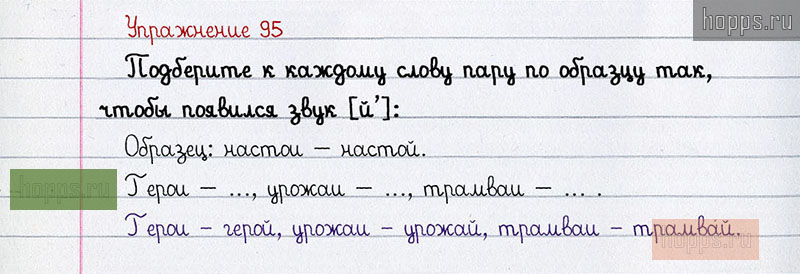 hopps.ru
Упражнение 95
Подберите к каждому слову пару по образцу так,
чтобы появился звук [й']:
Образец: настои – настой.
hopps.ru
Герои – ..., урожаи – ..., трамваи – ... .
Герои – герой, урожаи – урожай, трамваи – трамвай.
hopps.ru